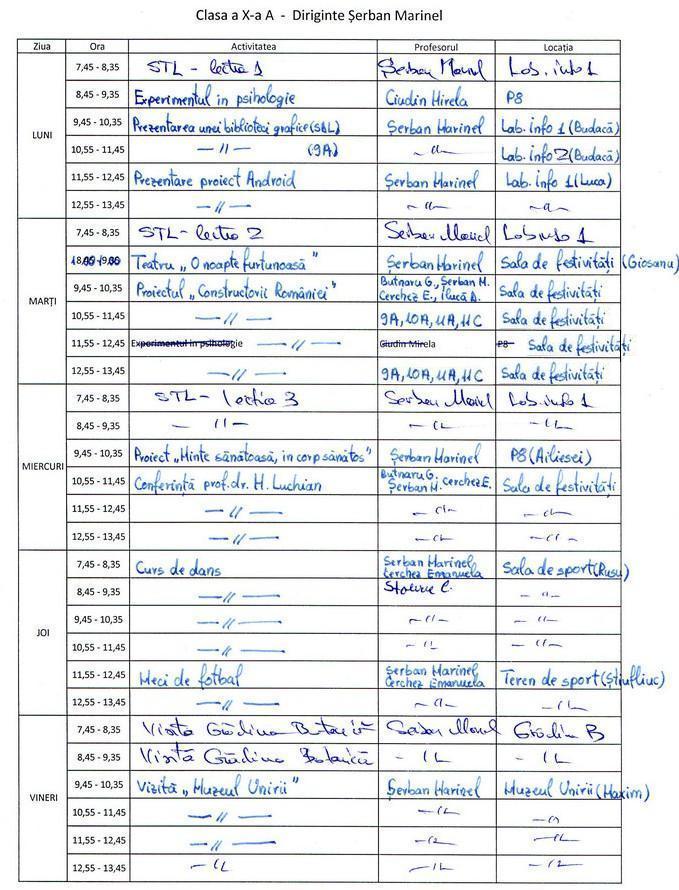 Clasa a X-a A - Diriginte Șerban Marinel
Ziua Ora Activitatea Profesorul Locația
LUNI
7,45 - 8,35 STL - lecția 1 Șerban Marinel Lab. info 1
8,45 - 9,35 Experimentul in psihologie Ciudin Mirela P8
9,45 - 10,35 Prezentarea unei biblioteci grafice (SDL) Șerban Marinel Lab. info 1 (Budacă)
10,55 - 11,45 — // — (9A) — // — Lab. info 2 (Budacă)
11,55 - 12,45 Prezentare proiect Android Șerban Marinel Lab. info 1 (Luca)
12,55 - 13,45 — // — — // — — // —
MARȚI
7,45 - 8,35 STL - lectia 2 Serban Marinel Lab info 1
Teatru „O noapte furtunoasă" Șerban Marinel Sala de festivități (Giosanu)
9,45 - 10,35 Proiectul „Constructorii României" Butnaru G., Șerban M. Sala de festivități
Cerchez E., Ilucă A.
10,55 - 11,45 — // — 9A, 10A, 11A, 11C Sala de festivități
11,55 - 12,45 Experimentul in psihologie — // — Ciudin Mirela P8 Sala de festivități
12,55 - 13,45 — // — 9A, 10A, 11A, 11C Sala de festivități
MIERCURI
7,45 - 8,35 STL - lectia 3 Serban Marinel Lab. info 1
8,45 - 9,35 — // — — // — — // —
9,45 - 10,35 Proiect „Minte sănătoasă, in corp sănătos" Șerban Marinel P8 (Ailiesei)
10,55 - 11,45 Conferință prof. dr. H. Luchian Butnaru G, Cerchez E. Sala de festivități
Șerban M.
11,55 - 12,45 — // — — // — — // —
12,55 - 13,45 — // — — // — — // —
JOI
7,45 - 8,35 Curs de dans Șerban Marinel Sala de sport (Rusu)
Cerchez Emanuela
8,45 - 9,35 — // — C. — // —
9,45 - 10,35 — // — — // — — // —
10,55 - 11,45 — // — — // — — // —
11,55 - 12,45 Meci de fotbal Șerban Marinel Teren de sport (Știufliuc)
Cerchez Emanuela
12,55 - 13,45 — // — — // — — // —
VINERI
7,45 - 8,35 Vizita Grădina Botanică Serban Marinel Grădina B
8,45 - 9,35 Vizita Grădina Botanică — // — — // —
9,45 - 10,35 Vizită „Muzeul Unirii" Șerban Marinel Muzeul Unirii (Maxim)
10,55 - 11,45 — // — — // — — // —
11,55 - 12,45 — // — — // — — // —
12,55 - 13,45 — // — — // — — // —